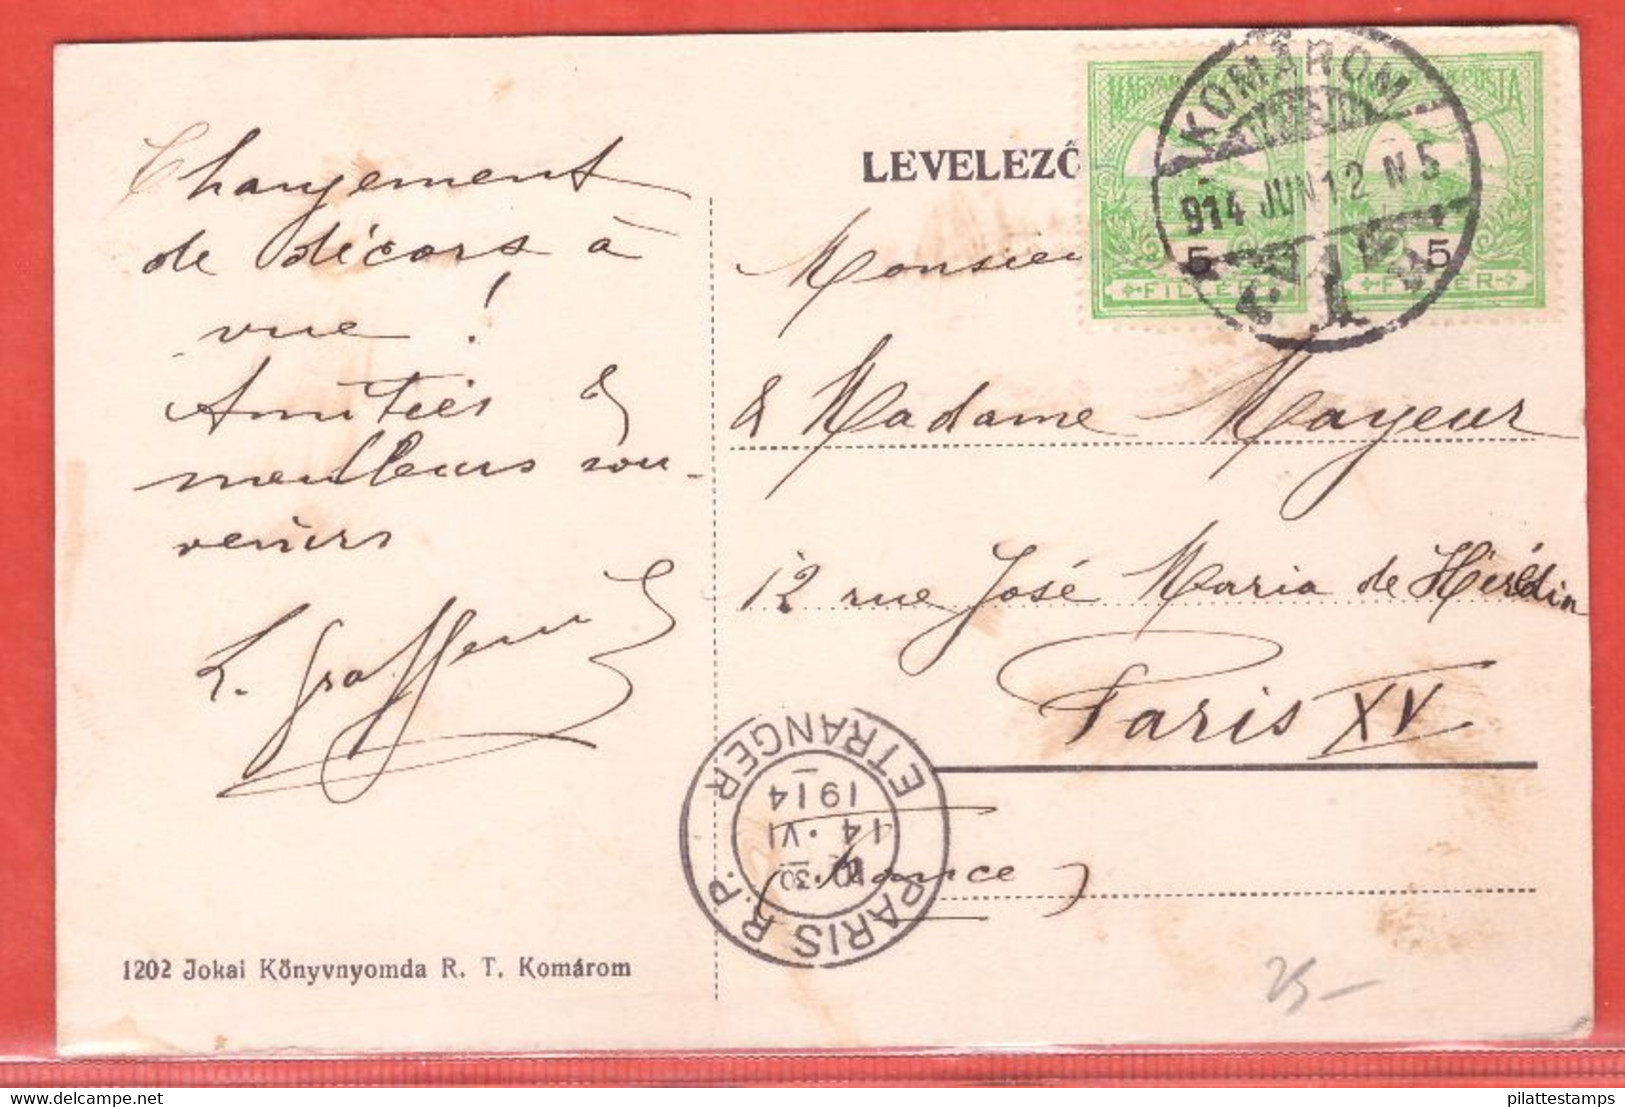 Changement
de décors à
vue !
Amitiés &
meilleurs sou-
venirs
LEVELEZŐ
MAGYAR
POSTA
5
5
FILLÉR
FILLÉR
KOMÁROM
914 JUN 12 N 5
Monsieur
& Madame Mayeur
12 rue José Maria de Hérédia
Paris XV
(France)
PARIS R.P.
ETRANGER
30
14 · VI
1914
1202 Jokai Könyvnyomda R. T. Komárom
25-
pilattestamps